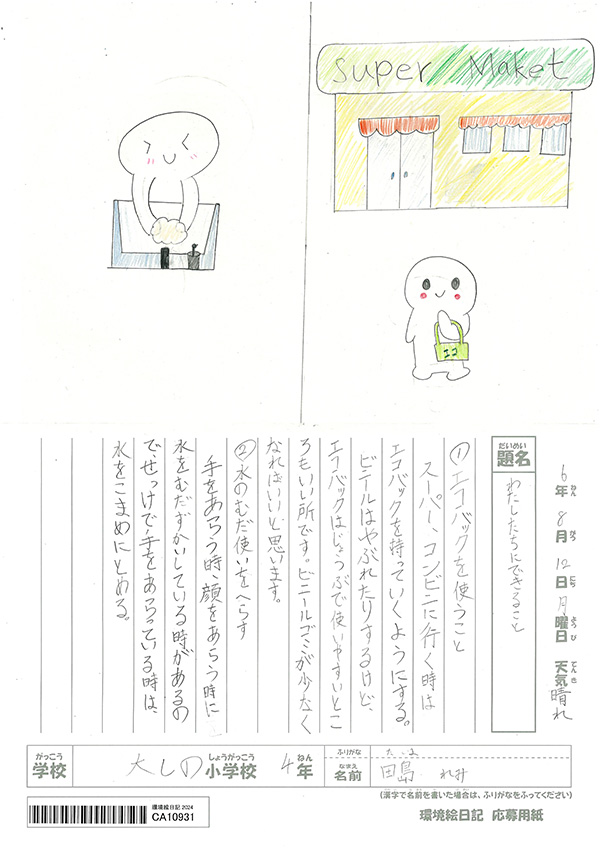 Super Maket
エコ
6年 8月 12日 月曜日 天気 晴れ
題名 わたしたちにできること
①エコバックを使うこと
スーパー、コンビニに行く時は
エコバックを持っていくようにする。
ビニールはやぶれたりするけど、
エコバックはじょうぶで使いやすいとこ
ろもいい所です。ビニールゴミが少なく
なればいいと思います。
②水のむだ使いをへらす
手をあらう時、顔をあらう時に
水をむだずかいしている時があるの
で、せっけで手をあらっている時は、
水をこまめにとめる。
がっこう しょうがっこう ねん ふりがな たじま
学校 大しの小学校 4年 なまえ 名前 田島 れみ
(漢字で名前を書いた場合は、ふりがなをふってください)
環境絵日記 2024
CA10931
環境絵日記 応募用紙